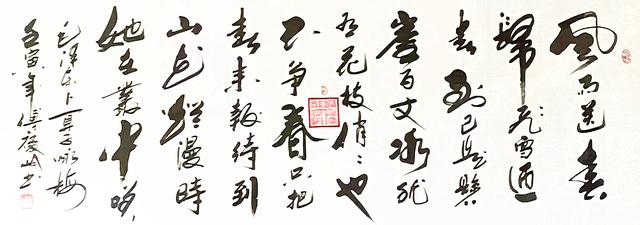 風雨送春
歸飛雪迎
春到已是懸
崖百丈冰犹
有花枝俏々也
不争春只把
春来報待到
山花爛漫時
她在叢中笑
毛泽东卜算子咏梅
壬寅年書